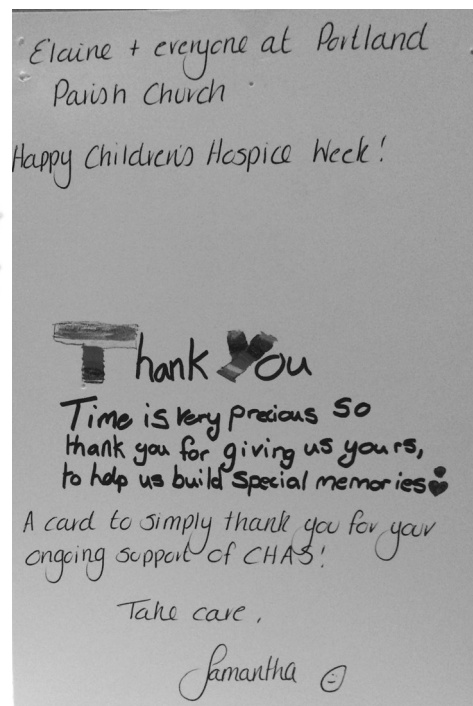 Elaine + everyone at Portland
Parish Church
Happy Children's Hospice Week!
Thank You
Time is very precious so
thank you for giving us yours,
to help us build special memories
A card to simply thank you for your
ongoing support of CHAS!
Take care,
Samantha